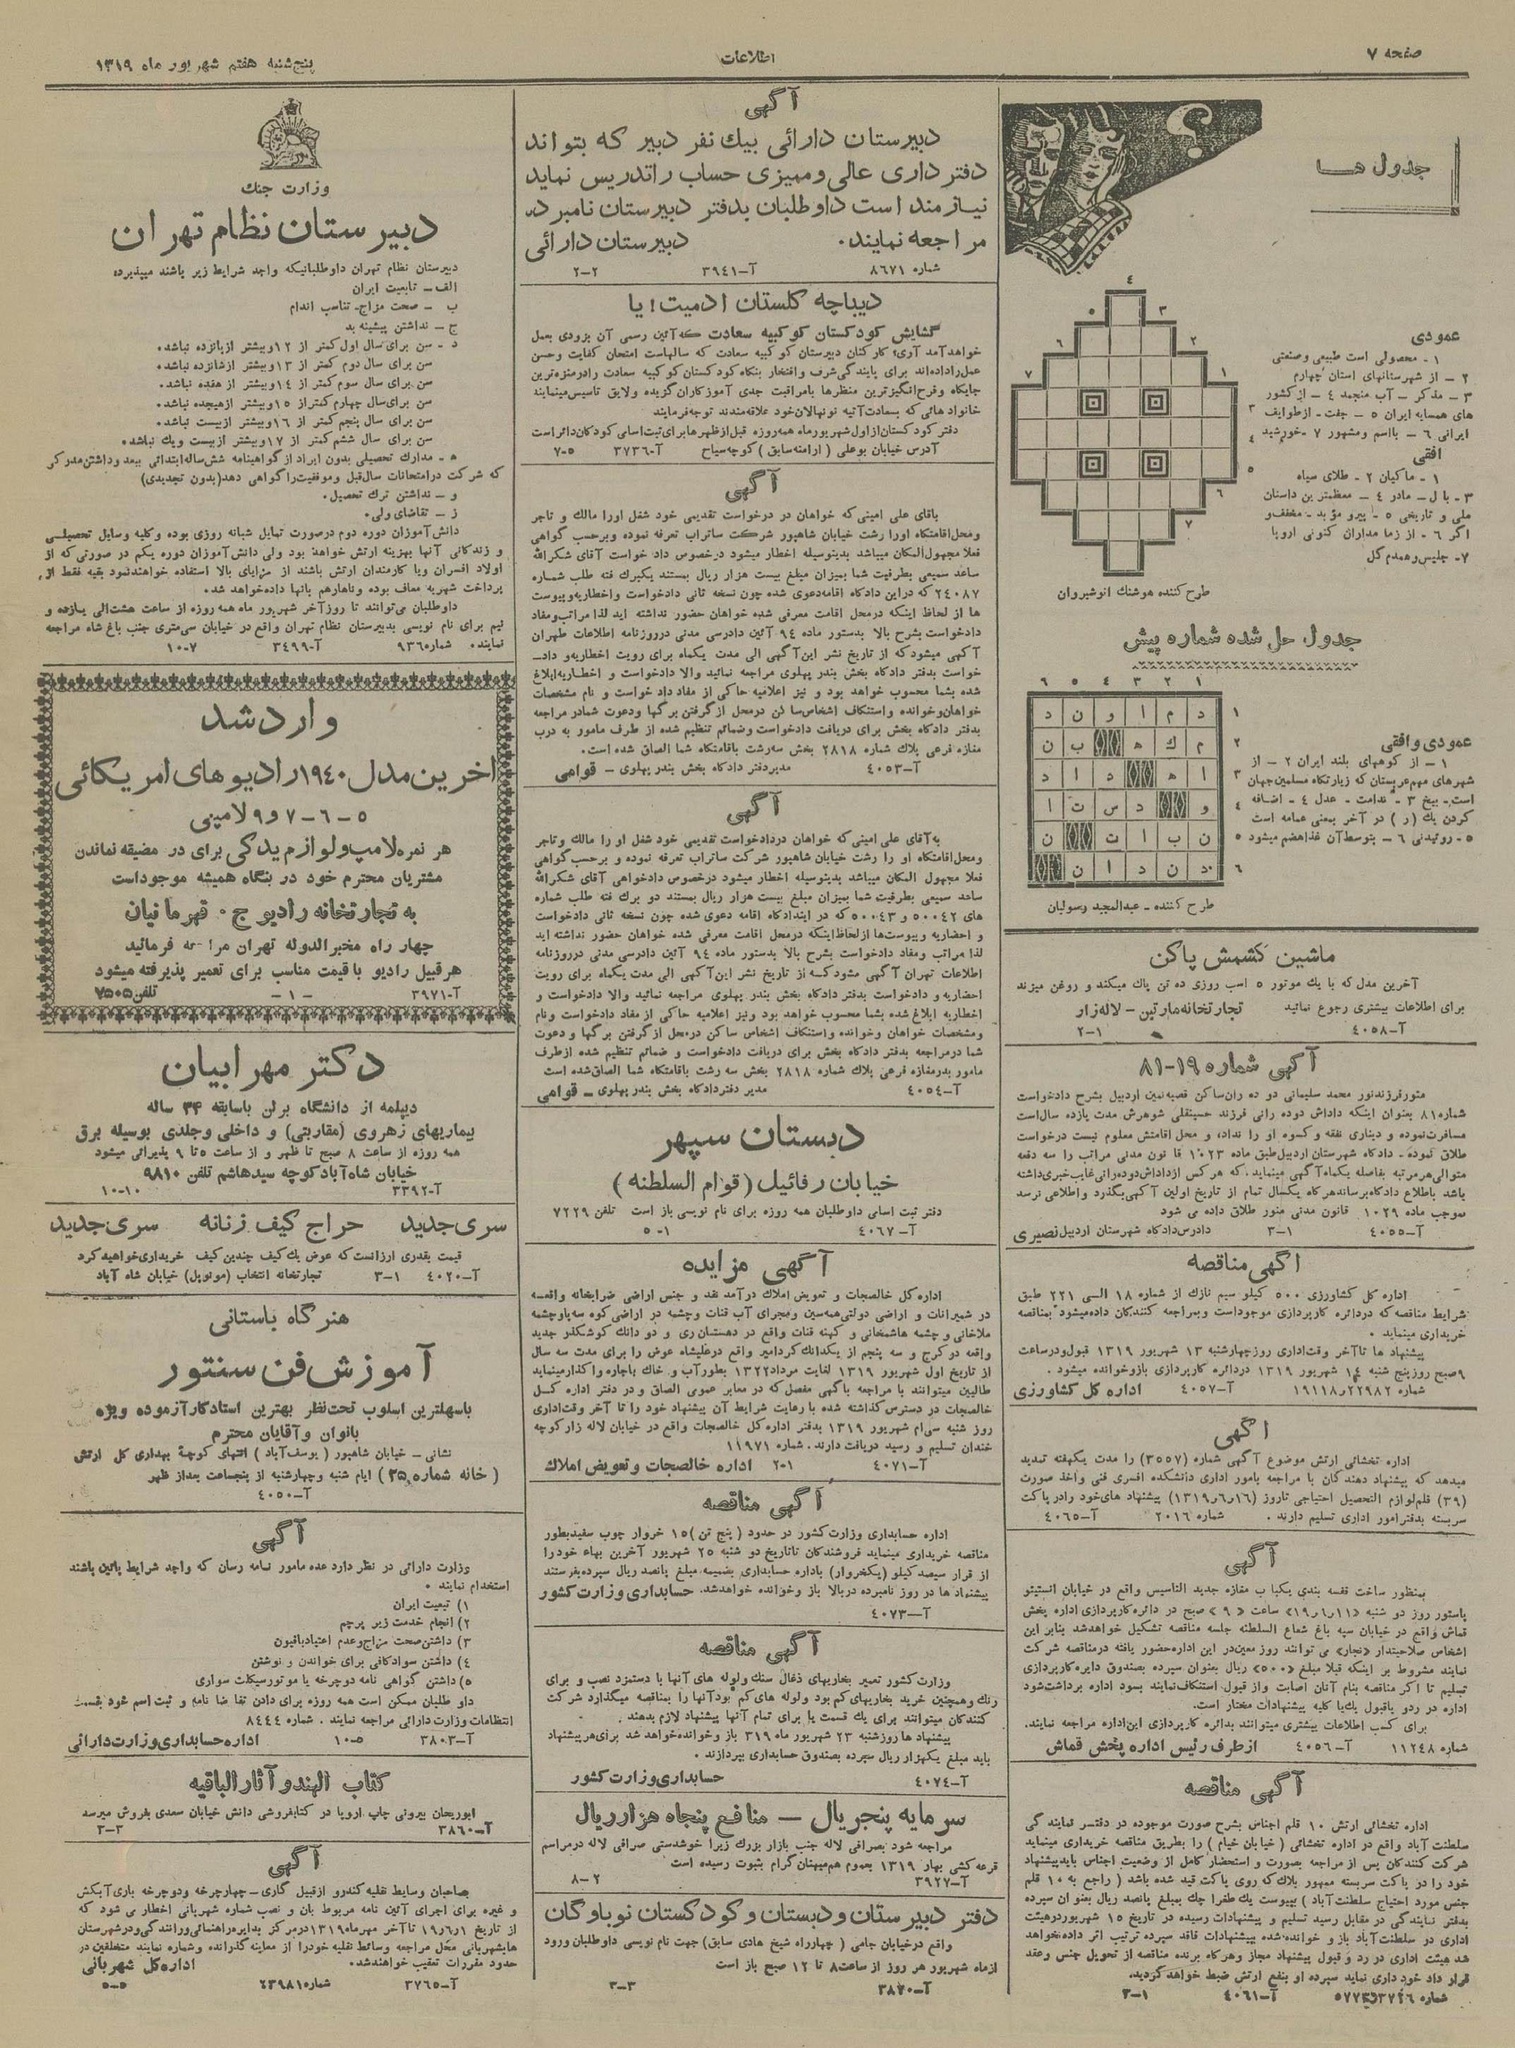 صفحه ۷
اطلاعات
پنج‌شنبه هفتم شهریور ماه ۱۳۱۹
جدول ها
عمودی
۱ - محصولی است طبیعی وصنعتی
۲ - از شهرستانهای استان چهارم
۳ - مذکر - آب منجمد ۴ - از کشور
های همسایه ایران ۵ - جفت - ازطوایف
ایرانی ۶ - بااسم ومشهور ۷ - خورشید
افقی
۱ - ماکیان ۲ - طلای سیاه
۳ - بال - مادر ۴ - معظمترین داستان
ملی و تاریخی ۵ - پیرو مؤبد - مخفف
اگر ۶ - از زمامداران کنونی اروپا
۷ - جلیس وهمدم گل
طرح کننده هوشنگ انوشیروان
جدول حل شده شماره پیش
۶ ۵ ۴ ۳ ۲ ۱
د م ا و ن د
م ک ه ب ن
ا ه د ا د
و د س ت ا
ن ب ا ت ن
د ن د ا ن
عمودی وافقی
۱ - از کوههای بلند ایران ۲ - از
شهرهای مهم عربستان که زیارتگاه مسلمین جهان
است - بیخ ۳ - ندامت - عدل ۴ - اضافه
کردن یک (ر) در آخر بمعنی عمامه است
۵ - روئیدنی ۶ - بتوسط آن غذا هضم میشود
طرح کننده - عبدالمجید رسولیان
ماشین کشمش پاکن
آخرین مدل که با یک موتور ۵ اسب روزی ده تن پاک میکند و روغن میزند
برای اطلاعات بیشتری رجوع نمائید تجارتخانه مارتین - لاله زار
آ-۴۰۵۸ ۲-۱
آگهی شماره ۱۹-۸۱
منور فرزند نور محمد سلیمانی دو ده ران ساکن قصبه نمین اردبیل بشرح دادخواست
شماره ۸۱ بعنوان اینکه داداش دوده رانی فرزند حسینقلی شوهرش مدت یازده سال است
مسافرت نموده و دیناری نفقه و کسوه او را نداده و محل اقامتش معلوم نیست درخواست
طلاق نموده - دادگاه شهرستان اردبیل طبق ماده ۱۰۲۳ قانون مدنی مراتب را سه دفعه
متوالی هر مرتبه بفاصله یکماه آگهی مینماید که هرکس از داداش دوده رانی غایب خبری داشته
باشد باطلاع دادگاه برساند هرگاه یکسال تمام از تاریخ اولین آگهی بگذرد و اطلاعی نرسد
بموجب ماده ۱۰۲۹ قانون مدنی منور طلاق داده می شود
آ-۴۰۵۵ ۳-۱ دادرس دادگاه شهرستان اردبیل نصیری
آگهی مناقصه
اداره کل کشاورزی ۵۰۰ کیلو سیم نازک از شماره ۱۸ الی ۲۲۱ طبق
شرایط مناقصه که دردائره کارپردازی موجود است وبمراجعه کنندگان داده میشود بمناقصه
خریداری مینماید.
پیشنهاد ها تا آخر وقت اداری روزچهارشنبه ۱۳ شهریور ۱۳۱۹ قبول و در ساعت
۹ صبح روزپنج شنبه ۱۴ شهریور ۱۳۱۹ دردائره کارپردازی بازوخوانده میشود.
شماره ۲۲۹۸۲ر۱۹۱۱۸ آ-۴۰۵۷ اداره کل کشاورزی
آگهی
اداره تخشائی ارتش موضوع آگهی شماره (۳۵۵۷) را مدت یکهفته تمدید
میدهد که پیشنهاد دهندگان با مراجعه بامور اداری دانشکده افسری فنی واخذ صورت
(۳۹) قلم لوازم التحصیل احتیاجی تاروز (۱۶ر۶ر۱۳۱۹) پیشنهاد های خود را در پاکت
سربسته بدفتر امور اداری تسلیم دارند. شماره ۲۰۱۶ آ-۴۰۶۵
آگهی
بمنظور ساخت قفسه بندی یکباب مغازه جدید التاسیس واقع در خیابان انستیتو
پاستور روز دو شنبه «۱۱ر۶ر۱۹» ساعت «۹» صبح در دائره کارپردازی اداره پخش
قماش واقع در خیابان سپه باغ شعاع السلطنه جلسه مناقصه تشکیل خواهد شد بنابر این
اشخاص صلاحیتدار «نجار» می توانند روز معین در این اداره حضور یافته درمناقصه شرکت
نمایند مشروط بر اینکه قبلا مبلغ «۵۰۰» ریال بعنوان سپرده بصندوق دایره کارپردازی
تسلیم تا اگر مناقصه بنام آنان اصابت و از قبول استنکاف نمایند بسود اداره برداشت شود
اداره در رد و یا قبول یک یا کلیه پیشنهادات مختار است.
برای کسب اطلاعات بیشتری میتوانند بدائره کارپردازی این اداره مراجعه نمایند.
شماره ۱۱۲۴۸ آ-۴۰۵۶ از طرف رئیس اداره پخش قماش
آگهی مناقصه
اداره تخشائی ارتش ۱۰ قلم اجناس بشرح صورت موجوده در دفتر نمایندگی
سلطنت آباد واقع در اداره تخشائی (خیابان خیام) را بطریق مناقصه خریداری مینماید
شرکت کنندگان پس از مراجعه بصورت و استحضار کامل از وضعیت اجناس باید پیشنهاد
خود را در پاکت سربسته ممهور بلاک که روی پاکت قید شده باشد (راجع به ۱۰ قلم
جنس مورد احتیاج سلطنت آباد) بپیوست یک طغرا چک بمبلغ پانصد ریال بعنوان سپرده
بدفتر نمایندگی در مقابل رسید تسلیم و پیشنهادات رسیده در تاریخ ۱۵ شهریور درهیئت
اداری در سلطنت آباد باز و خوانده شده پیشنهادات فاقد سپرده ترتیب اثر داده نخواهد
شد هیئت اداری در رد و قبول پیشنهاد مجاز وهرگاه برنده مناقصه از تحویل جنس و عقد
قرار داد خود داری نماید سپرده او بنفع ارتش ضبط خواهد گردید.
آ-۴۰۶۱ ۳-۱
آگهی
دبیرستان دارائی بیک نفر دبیر که بتواند
دفتر داری عالی و ممیزی حساب را تدریس نماید
نیازمند است داوطلبان بدفتر دبیرستان نامبرده
مراجعه نمایند. دبیرستان دارائی
شماره ۸۶۷۱ آ-۳۹۴۱ ۲-۲
دیباچه گلستان ادمیت! یا
گشایش کودکستان کوکبیه سعادت که آئین رسمی آن بزودی بعمل
خواهد آمد آری! کارکنان دبیرستان کوکبیه سعادت که سالهاست امتحان کفایت وحسن
عمل راداده‌اند برای پایندگی شرف وافتخار بنگاه کودکستان کوکبیه سعادت رادرمنزه‌ترین
جایگاه وفرح‌انگیزترین منظرها بامراقبت جدی آموزکاران گزیده ولایق تاسیس مینمایند
خانواده‌هائی که بسعادت آتیه نونهالان خود علاقه‌مندند توجه فرمایند
دفتر کودکستان از اول شهریور ماه همه روزه قبل از ظهرها برای ثبت اسامی کودکان دائر است
آدرس خیابان بوعلی (ارامنه سابق) کوچه سیاح آ-۳۷۳۶ ۷-۵
آگهی
باقای علی امینی که خواهان در درخواست تقدیمی خود شغل اورا مالک و تاجر
ومحل اقامتگاه اورا رشت خیابان شاهپور شرکت ساتراپ تعرفه نموده وبرحسب گواهی
فعلا مجهول المکان میباشد بدینوسیله اخطار میشود درخصوص داد خواست آقای شکرالله
ساعد سمیعی بطرفیت شما بمیزان مبلغ بیست هزار ریال بمستند یکبرک فته طلب شماره
۲۴۰۸۷ که دراین دادگاه اقامه دعوی شده چون نسخه ثانی دادخواست واخطاریه وپیوست
ها از لحاظ اینکه درمحل اقامت معرفی شده خواهان حضور نداشته اید لذا مراتب ومفاد
دادخواست بشرح بالا بدستور ماده ۹۴ آئین دادرسی مدنی درروزنامه اطلاعات طهران
آگهی میشود که از تاریخ نشر این آگهی الی مدت یکماه برای رویت اخطاریه و داد-
خواست بدفتر دادگاه بخش بندر پهلوی مراجعه نمائید والا دادخواست و اخطاریه ابلاغ
شده بشما محسوب خواهد بود و نیز اعلامیه حاکی از مفاد داد خواست و نام مشخصات
خواهان وخوانده واستنکاف اشخاص ساکن درمحل ازگرفتن برگها ودعوت شمادر مراجعه
بدفتر دادگاه بخش برای دریافت دادخواست وضمائم تنظیم شده از طرف مامور به درب
مغازه فرعی پلاک شماره ۲۸۱۸ بخش سه رشت باقامتگاه شما الصاق شده است.
آ-۴۰۵۳ مدیر دفتر دادگاه بخش بندر پهلوی - قوامی
آگهی
به آقای علی امینی که خواهان دردادخواست تقدیمی خود شغل او را مالک وتاجر
ومحل اقامتگاه او را رشت خیابان شاهپور شرکت ساتراپ تعرفه نموده و برحسب گواهی
فعلا مجهول المکان میباشد بدینوسیله اخطار میشود درخصوص دادخواهی آقای شکرالله
ساعد سمیعی بطرفیت شما بمیزان مبلغ بیست هزار ریال بمستند دو برک فته طلب شماره
های ۵۰۰۴۲ و ۵۰۰۴۳ که در ایندادگاه اقامه دعوی شده چون نسخه ثانی دادخواست
و احضاریه وپیوست‌ها ازلحاظ اینکه درمحل اقامت معرفی شده خواهان حضور نداشته اید
لذا مراتب ومفاد دادخواست بشرح بالا بدستور ماده ۹۴ آئین دادرسی مدنی درروزنامه
اطلاعات تهران آگهی میشود که از تاریخ نشر این آگهی الی مدت یکماه برای رویت
احضاریه و دادخواست بدفتر دادگاه بخش بندر پهلوی مراجعه نمائید والا دادخواست و
اخطاریه ابلاغ شده بشما محسوب خواهد بود ونیز اعلامیه حاکی از مفاد دادخواست ونام
ومشخصات خواهان وخوانده واستنکاف اشخاص ساکن درمحل از گرفتن برگها و دعوت
شما درمراجعه بدفتر دادگاه بخش برای دریافت دادخواست و ضمائم تنظیم شده ازطرف
مامور بدرمغازه فرعی پلاک شماره ۲۸۱۸ بخش سه رشت باقامتگاه شما الصاق شده است
آ-۴۰۵۴ مدیر دفتر دادگاه بخش بندر پهلوی - قوامی
دبستان سپهر
خیابان رفائیل (قوام السلطنه)
دفتر ثبت اسامی داوطلبان همه روزه برای نام نویسی باز است تلفن ۷۲۲۹
آ-۴۰۶۷ ۵-۱
آگهی مزایده
اداره کل خالصجات و تعویض املاک درآمد نقد و جنس اراضی ضرابخانه واقعه
در شمیرانات و اراضی دولتی همه‌سین ومجرای آب قنات وچشمه در اراضی کوه سه‌پاوچشمه
ملاخانی و چشمه هاشمخانی و کهنه قنات واقع در دهستان ری و دو دانک کوشکلر جدید
واقعه دو کرج و سه پنجم از یکدانک کردامیر واقع درعلیشاه عوض را برای مدت سه سال
از تاریخ اول شهریور ۱۳۱۹ لغایت مرداد ۱۳۲۲ بطور آب و خاک باجاره واگذار مینماید
طالبین میتوانند با مراجعه باگهی مفصل که در معابر عمومی الصاق و در دفتر اداره کل
خالصجات در دسترس گذاشته شده با رعایت شرایط آن پیشنهاد خود را تا آخر وقت اداری
روز شنبه سی‌ام شهریور ۱۳۱۹ بدفتر اداره کل خالصجات واقع در خیابان لاله زار کوچه
خندان تسلیم و رسید دریافت دارند. شماره ۱۱۹۷۱
آ-۴۰۷۱ ۲-۱ اداره خالصجات و تعویض املاک
آگهی مناقصه
اداره حسابداری وزارت کشور در حدود (پنج تن) ۱۵ خروار چوب سفید بطور
مناقصه خریداری مینماید فروشندگان تا تاریخ دو شنبه ۲۵ شهریور آخرین بهاء خود را
از قرار سیصد کیلو (یکخروار) باداره حسابداری بضمیمه مبلغ پانصد ریال سپرده بفرستند
پیشنهاد ها در روز نامبرده دربالا باز وخوانده خواهد شد. حسابداری وزارت کشور
آ-۴۰۷۳
آگهی مناقصه
وزارت کشور تعمیر بخاریهای ذغال سنک ولوله های آنها با دستمزد نصب و برای
رنک وهمچنین خرید بخاریهای کم بود ولوله های کم بود آنها را بمناقصه میگذارد شرکت
کنندگان میتوانند برای یک قسمت یا برای تمام آنها پیشنهاد لازم بدهند.
پیشنهاد ها روزشنبه ۲۳ شهریور ماه ۳۱۹ باز وخوانده خواهد شد برای هر پیشنهاد
باید مبلغ یکهزار ریال سپرده بصندوق حسابداری بپردازند.
آ-۴۰۷۴ حسابداری وزارت کشور
سرمایه پنجریال - منافع پنجاه هزار ریال
مراجعه شود بصرافی لاله جنب بازار بزرک زیرا خوشدستی صرافی لاله درمراسم
قرعه کشی بهار ۱۳۱۹ بعموم هم‌میهنان گرام بثبوت رسیده است
آ-۳۹۲۷ ۸-۲
دفتر دبیرستان و دبستان و کودکستان نوباوگان
واقع در خیابان جامی (چهارراه شیخ هادی سابق) جهت نام نویسی داوطلبان ورود
ازماه شهریور هر روز از ساعت ۸ تا ۱۲ صبح باز است
آ-۳۸۷۰ ۳-۳
وزارت جنک
دبیرستان نظام تهران
دبیرستان نظام تهران داوطلبانیکه واجد شرایط زیر باشند میپذیرد
الف - تابعیت ایران
ب - صحت مزاج - تناسب اندام
ج - نداشتن پیشینه بد
د - سن برای سال اول کمتر از ۱۲ وبیشتر از پانزده نباشد.
سن برای سال دوم کمتر از ۱۳ وبیشتر از شانزده نباشد.
سن برای سال سوم کمتر از ۱۴ وبیشتر از هفده نباشد.
سن برای سال چهارم کمتر از ۱۵ وبیشتر ازهیجده نباشد.
سن برای سال پنجم کمتر از ۱۶ وبیشتر ازبیست نباشد.
سن برای سال ششم کمتر از ۱۷ وبیشتر ازبیست ویک نباشد.
ه - مدارک تحصیلی بدون ایراد ازگواهینامه شش ساله ابتدائی ببعد و داشتن مدرکی
که شرکت در امتحانات سال قبل وموفقیت را گواهی دهد (بدون تجدیدی)
و - نداشتن ترک تحصیل.
ز - تقاضای ولی.
دانش آموزان دوره دوم درصورت تمایل شبانه روزی بوده وکلیه وسایل تحصیلی
و زندگانی آنها بهزینه ارتش خواهد بود ولی دانش آموزان دوره یکم در صورتی که از
اولاد افسران ویا کارمندان ارتش باشند از مزایای بالا استفاده خواهند نمود بقیه فقط از
پرداخت شهریه معاف بوده وناهارهم بانها داده خواهد شد.
داوطلبان می‌توانند تا روز آخر شهریور ماه همه روزه از ساعت هشت الی یازده و
نیم برای نام نویسی بدبیرستان نظام تهران واقع در خیابان سی متری جنب باغ شاه مراجعه
نمایند. شماره ۹۳۶ آ-۳۴۹۹ ۱۰-۷
وارد شد
اخرین مدل ۱۹۴۰ رادیو های امریکائی
۵ - ۶ - ۷ و ۹ لامپی
هر نمره لامپ و لوازم یدکی برای در مضیقه نماندن
مشتریان محترم خود در بنگاه همیشه موجود است
به تجارتخانه رادیو ج. قهرمانیان
چهار راه مخبرالدوله تهران مراجعه فرمائید
هرقبیل رادیو با قیمت مناسب برای تعمیر پذیرفته میشود
آ-۳۹۷۱ -۱- تلفن ۷۵۰۵
دکتر مهرابیان
دیپلمه از دانشگاه برلن باسابقه ۳۴ ساله
بیماریهای زهروی (مقاربتی) و داخلی وجلدی بوسیله برق
همه روزه از ساعت ۸ صبح تا ظهر و از ساعت ۵ تا ۹ پذیرائی میشود
خیابان شاه آباد کوچه سید هاشم تلفن ۹۸۱۰
آ-۳۳۹۲ ۱۰-۱۰
سری جدید حراج کیف زنانه سری جدید
قیمت بقدری ارزانست که عوض یک کیف چندین کیف خریداری خواهید کرد
آ-۴۰۲۰ ۳-۱ تجارتخانه انتخاب (مونوپل) خیابان شاه آباد
هنرگاه باستانی
آموزش فن سنتور
باسهلترین اسلوب تحت نظر بهترین استاد کارآزموده ویژه
بانوان وآقایان محترم
نشانی - خیابان شاهپور (یوسف آباد) انتهای کوچه بهداری کل ارتش
(خانه شماره ۲۵) ایام شنبه وچهارشنبه از پنجساعت بعد از ظهر
آ-۴۰۵۰
آگهی
وزارت دارائی در نظر دارد عده مامور نامه رسان که واجد شرایط پائین باشند
استخدام نمایند.
۱) تبعیت ایران
۲) انجام خدمت زیر پرچم
۳) داشتن صحت مزاج وعدم اعتیاد بافیون
۴) داشتن سواد کافی برای خواندن و نوشتن
۵) داشتن گواهی نامه دوچرخه یا موتورسیکلت سواری
داوطلبان ممکن است همه روزه برای دادن تقاضا نامه و ثبت اسم خود بقسمت
انتظامات وزارت دارائی مراجعه نمایند. شماره ۸۴۴۴
آ-۳۸۰۳ ۱۰-۵ اداره حسابداری وزارت دارائی
کتاب الهند و آثار الباقیه
ابوریحان بیرونی چاپ اروپا در کتابفروشی دانش خیابان سعدی بفروش میرسد
آ-۳۸۶۰ ۳-۳
آگهی
صاحبان وسایط نقلیه کندرو ازقبیل گاری - چهارچرخه ودوچرخه باری آبکش
و غیره برای اجرای آئین نامه مربوط بان و نصب شماره شهربانی اخطار می شود که
از تاریخ ۱ر۶ر۱۹ تا آخر مهرماه ۱۳۱۹ درمرکز بدایره راهنمائی ورانندگی ودرشهرستان
هابشهربانی محل مراجعه وسائط نقلیه خودرا از معاینه گذرانده وشماره نمایند متخلفین در
حدود مقررات تعقیب خواهندشد. اداره کل شهربانی
شماره ۲۳۹۸۱ آ-۳۷۶۵ ۵-۵